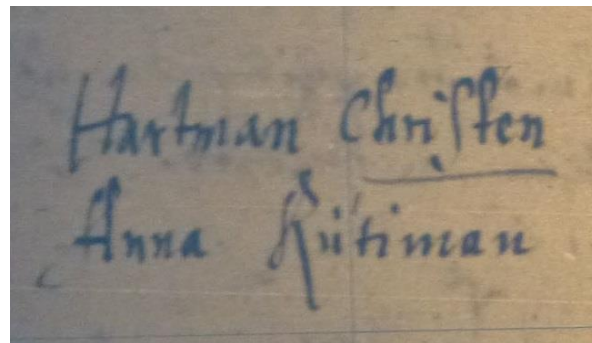 Hartman Christen
Anna Rütiman